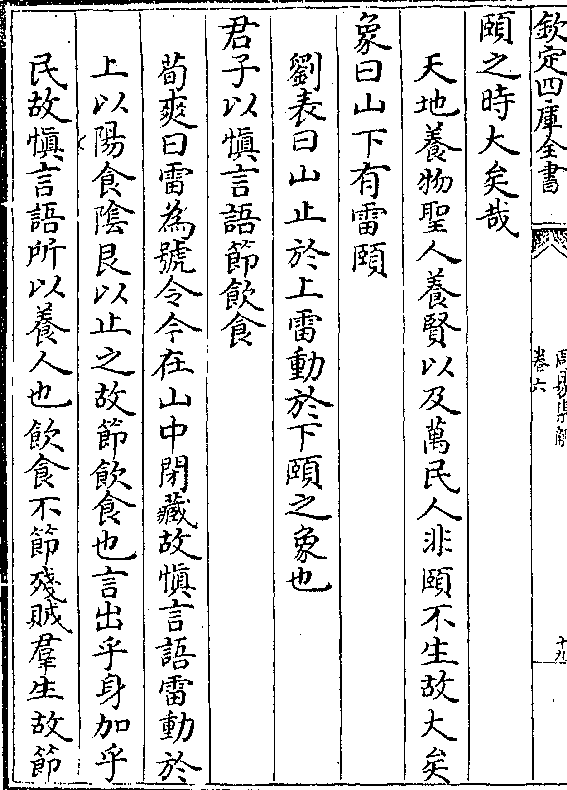 欽定四庫全書
周易集解
卷六
十九
頤之時大矣哉
天地養物聖人養賢以及萬民人非頤不生故大矣
象曰山下有雷頤
劉表曰山止於上雷動於下頤之象也
君子以慎言語節飲食
荀爽曰雷為號令今在山中閉藏故慎言語雷動於
上以陽食陰艮以止之故節飲食也言出乎身加乎
民故慎言語所以養人也飲食不節殘賊羣生故節